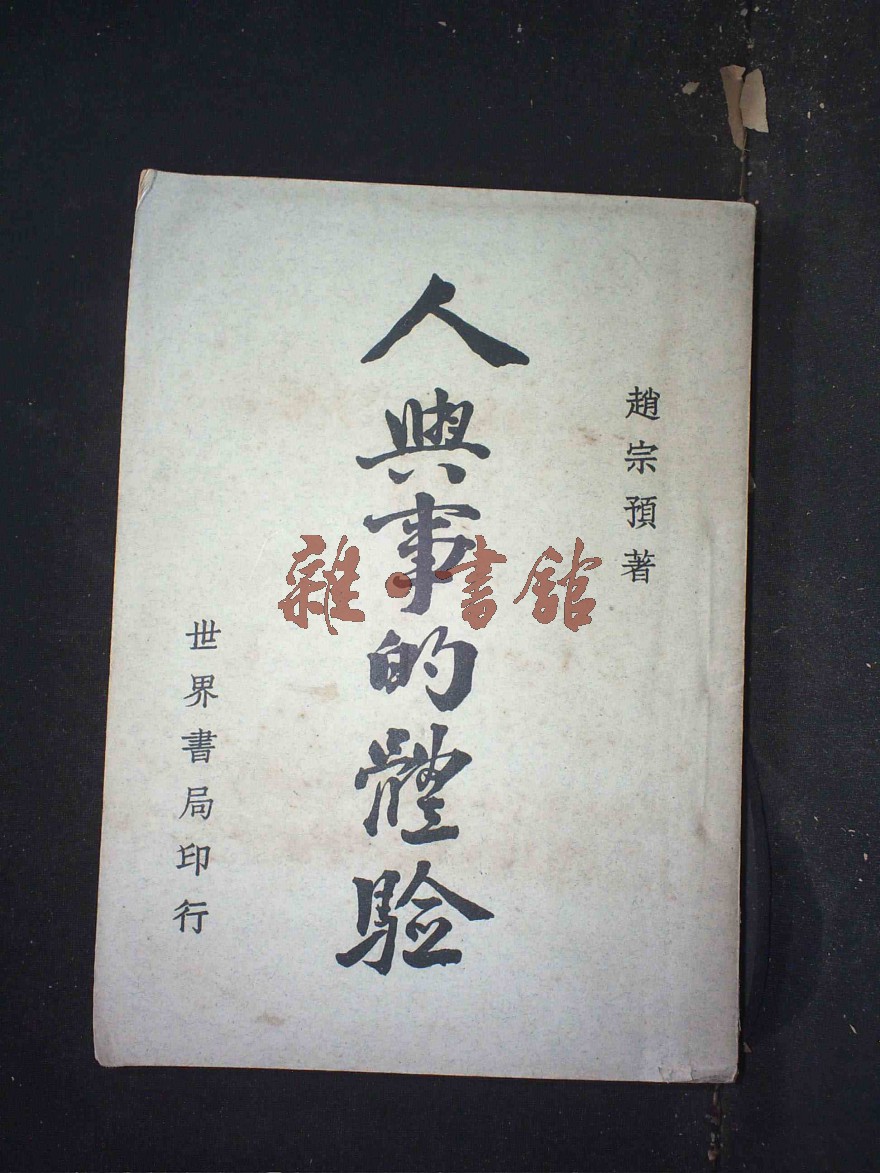 趙宗預著
人與事的體驗
世界書局印行
雜·書館